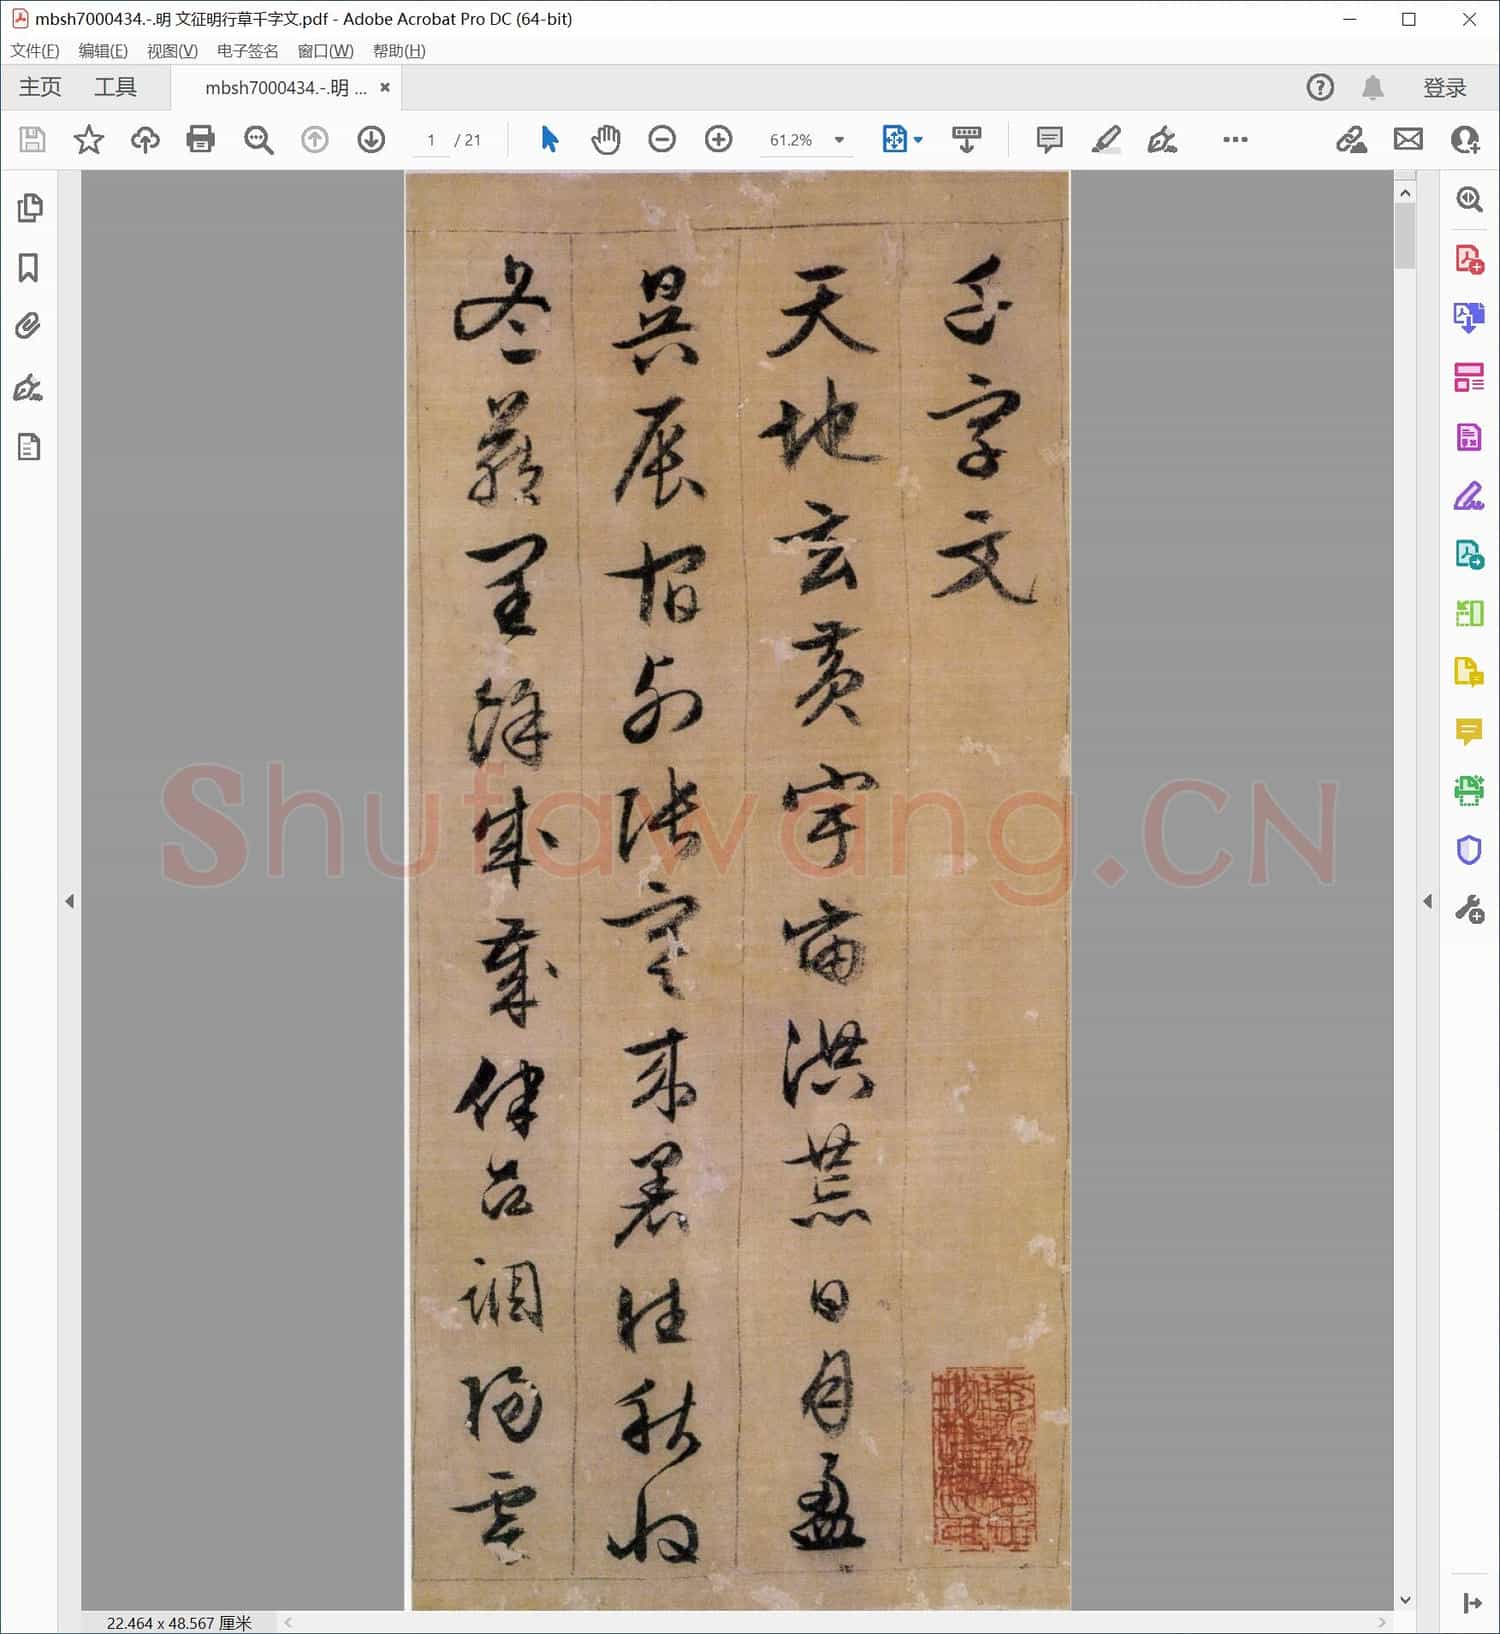 mbsh7000434.-.明 文征明行草千字文.pdf - Adobe Acrobat Pro DC (64-bit)
文件(F) 编辑(E) 视图(V) 电子签名 窗口(W) 帮助(H)
主页 工具 mbsh7000434.-.明 ... 登录
1 / 21 61.2%
千字文
天地玄黄宇宙洪荒日月盈
昃辰宿列张寒来暑往秋收
冬藏闰馀成岁律吕调阳云
Shufawang.CN
22.464 x 48.567 厘米